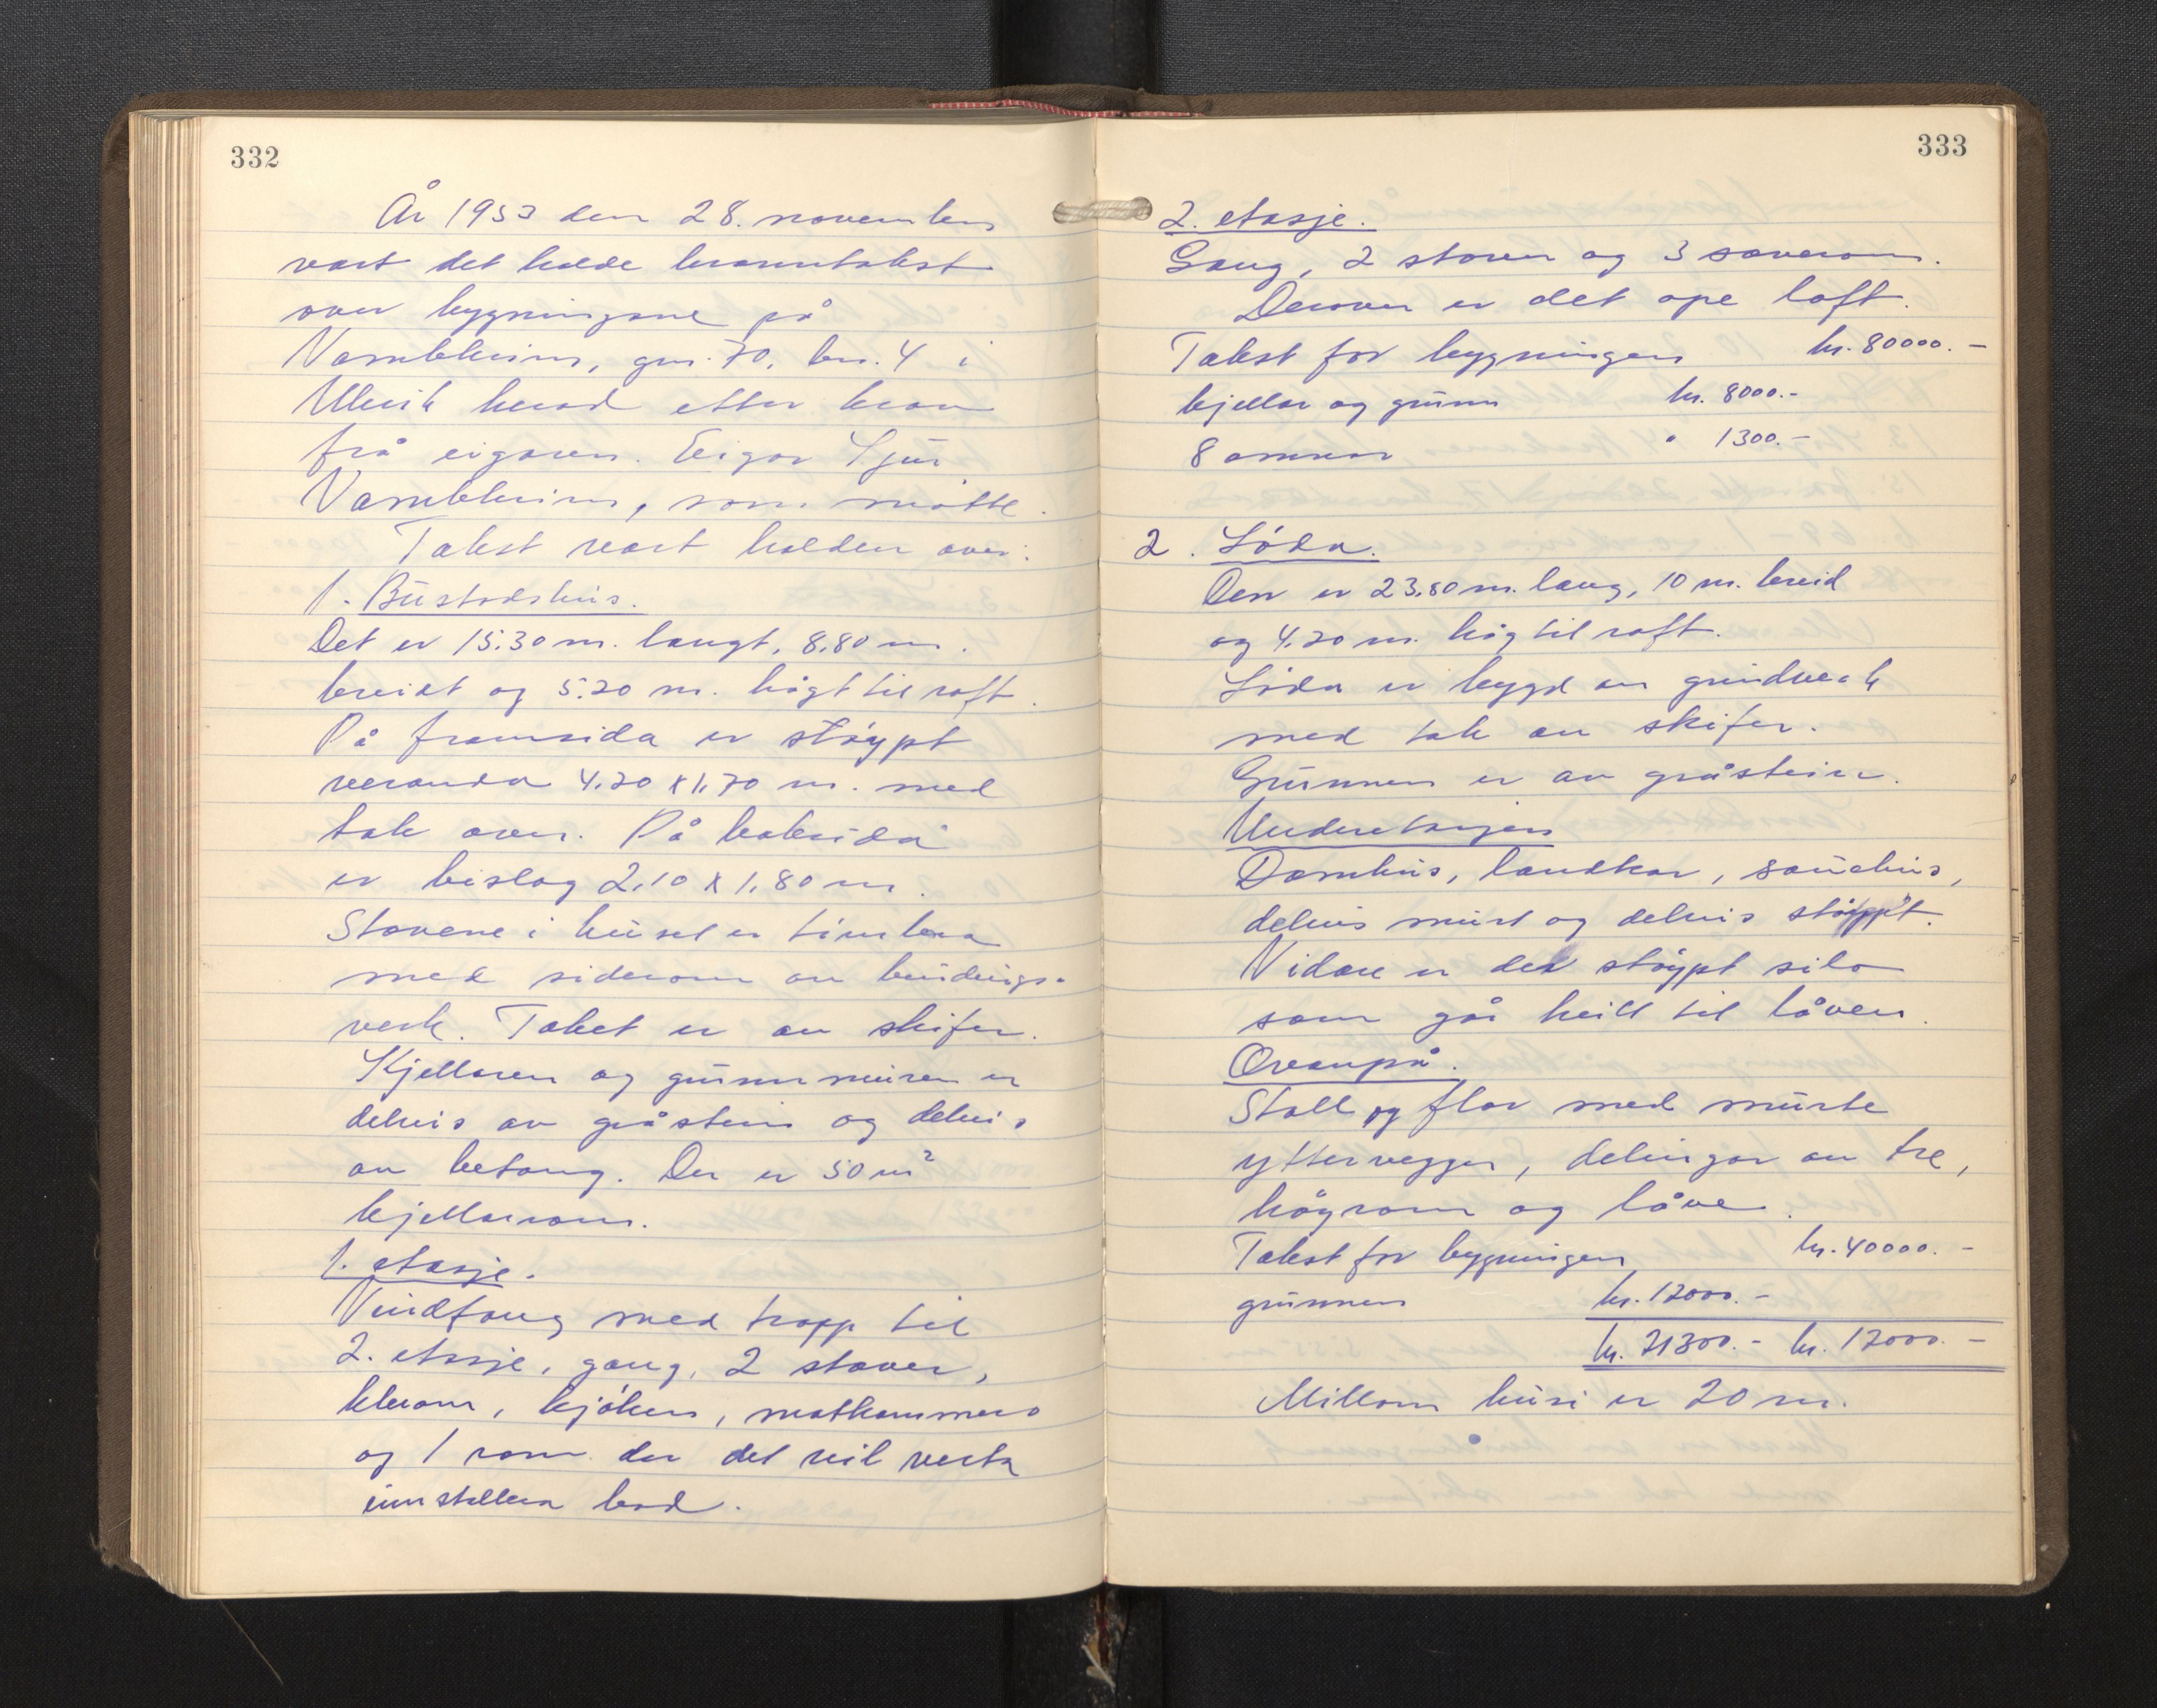 332
År 1953 den 28. november
vart det halde branntakst
over bygningane på
Vambheim, gnr. 70, bnr. 4 i
Ulvik herad etter krav
frå eigaren. Eigar Sjur
Vambheim, som møtte.
Takst vart halden over:
1. Bustadshus.
Det er 15.30 m. langt, 8.80 m.
breidt og 5.20 m. høgt til raft.
På framsida er støypt
veranda 4.20 x 1.70 m. med
tak over. På baksida
er bislag 2.10 x 1.80 m.
Stovene i huset er timbra
med siderom av bindings-
verk. Taket er av skifer.
Kjellaren og grunnmuren er
delvis av gråstein og delvis
av betong. Der er 50 m²
kjellarrom.
1. etasje.
Vindfang med trapp til
2. etasje, gang, 2 stover,
klerom, kjøken, matkammers
og 1 rom der det vil verta
innstallera bad.
333
2. etasje.
Gang, 2 stover og 3 soverom.
Derover er det ope loft.
Takst for bygningen kr. 80000.-
kjellar og grunn kr. 8000.-
8 omnar " 1300.-
2. Löda.
Den er 23.80 m. lang, 10 m. breid
og 4.20 m. høg til raft.
Löda er bygd av grindverk
med tak av skifer.
Grunnen er av gråstein.
Underetasjen
Domhus, landkar, sauehus,
delvis murt og delvis støypt.
Vidare er det støypt silo
som går heilt til låven.
Ovanpå.
Stall og flor med murte
yttervegger, delingar av tre,
høyrom og låve.
Takst for bygningen kr. 40000.-
grunnen kr. 12000.-
kr. 21300.- kr. 12000.-
Millom husi er 20 m.